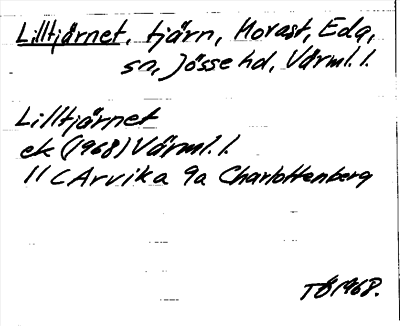 Lilltjärnet, tjärn, Morast, Eda,
sn, Jösse hd, Värml. l.
Lilltjärnet
ek (1968) Värml. l.
11C Arvika 9a Charlottenberg
TÖ 1968.